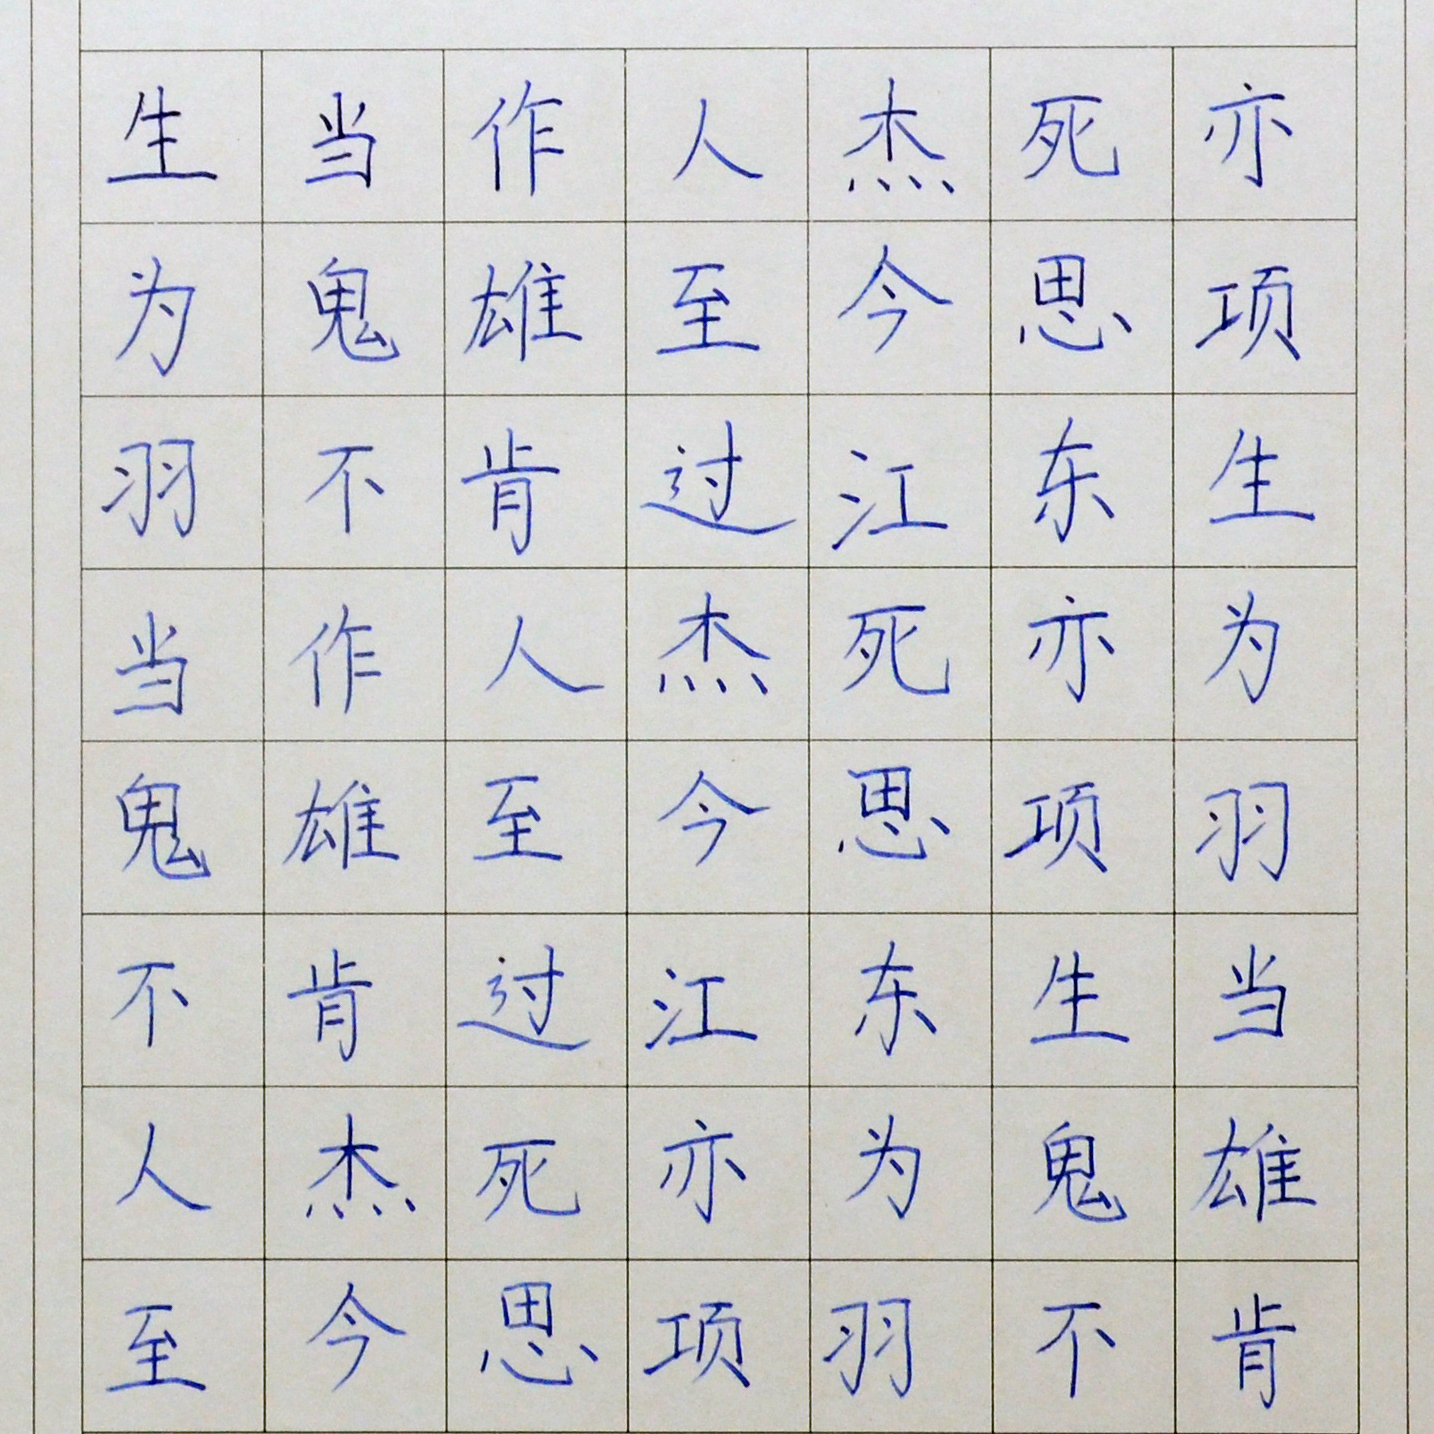 生当作人杰死亦
为鬼雄至今思项
羽不肯过江东生
当作人杰死亦为
鬼雄至今思项羽
不肯过江东生当
人杰死亦为鬼雄
至今思项羽不肯